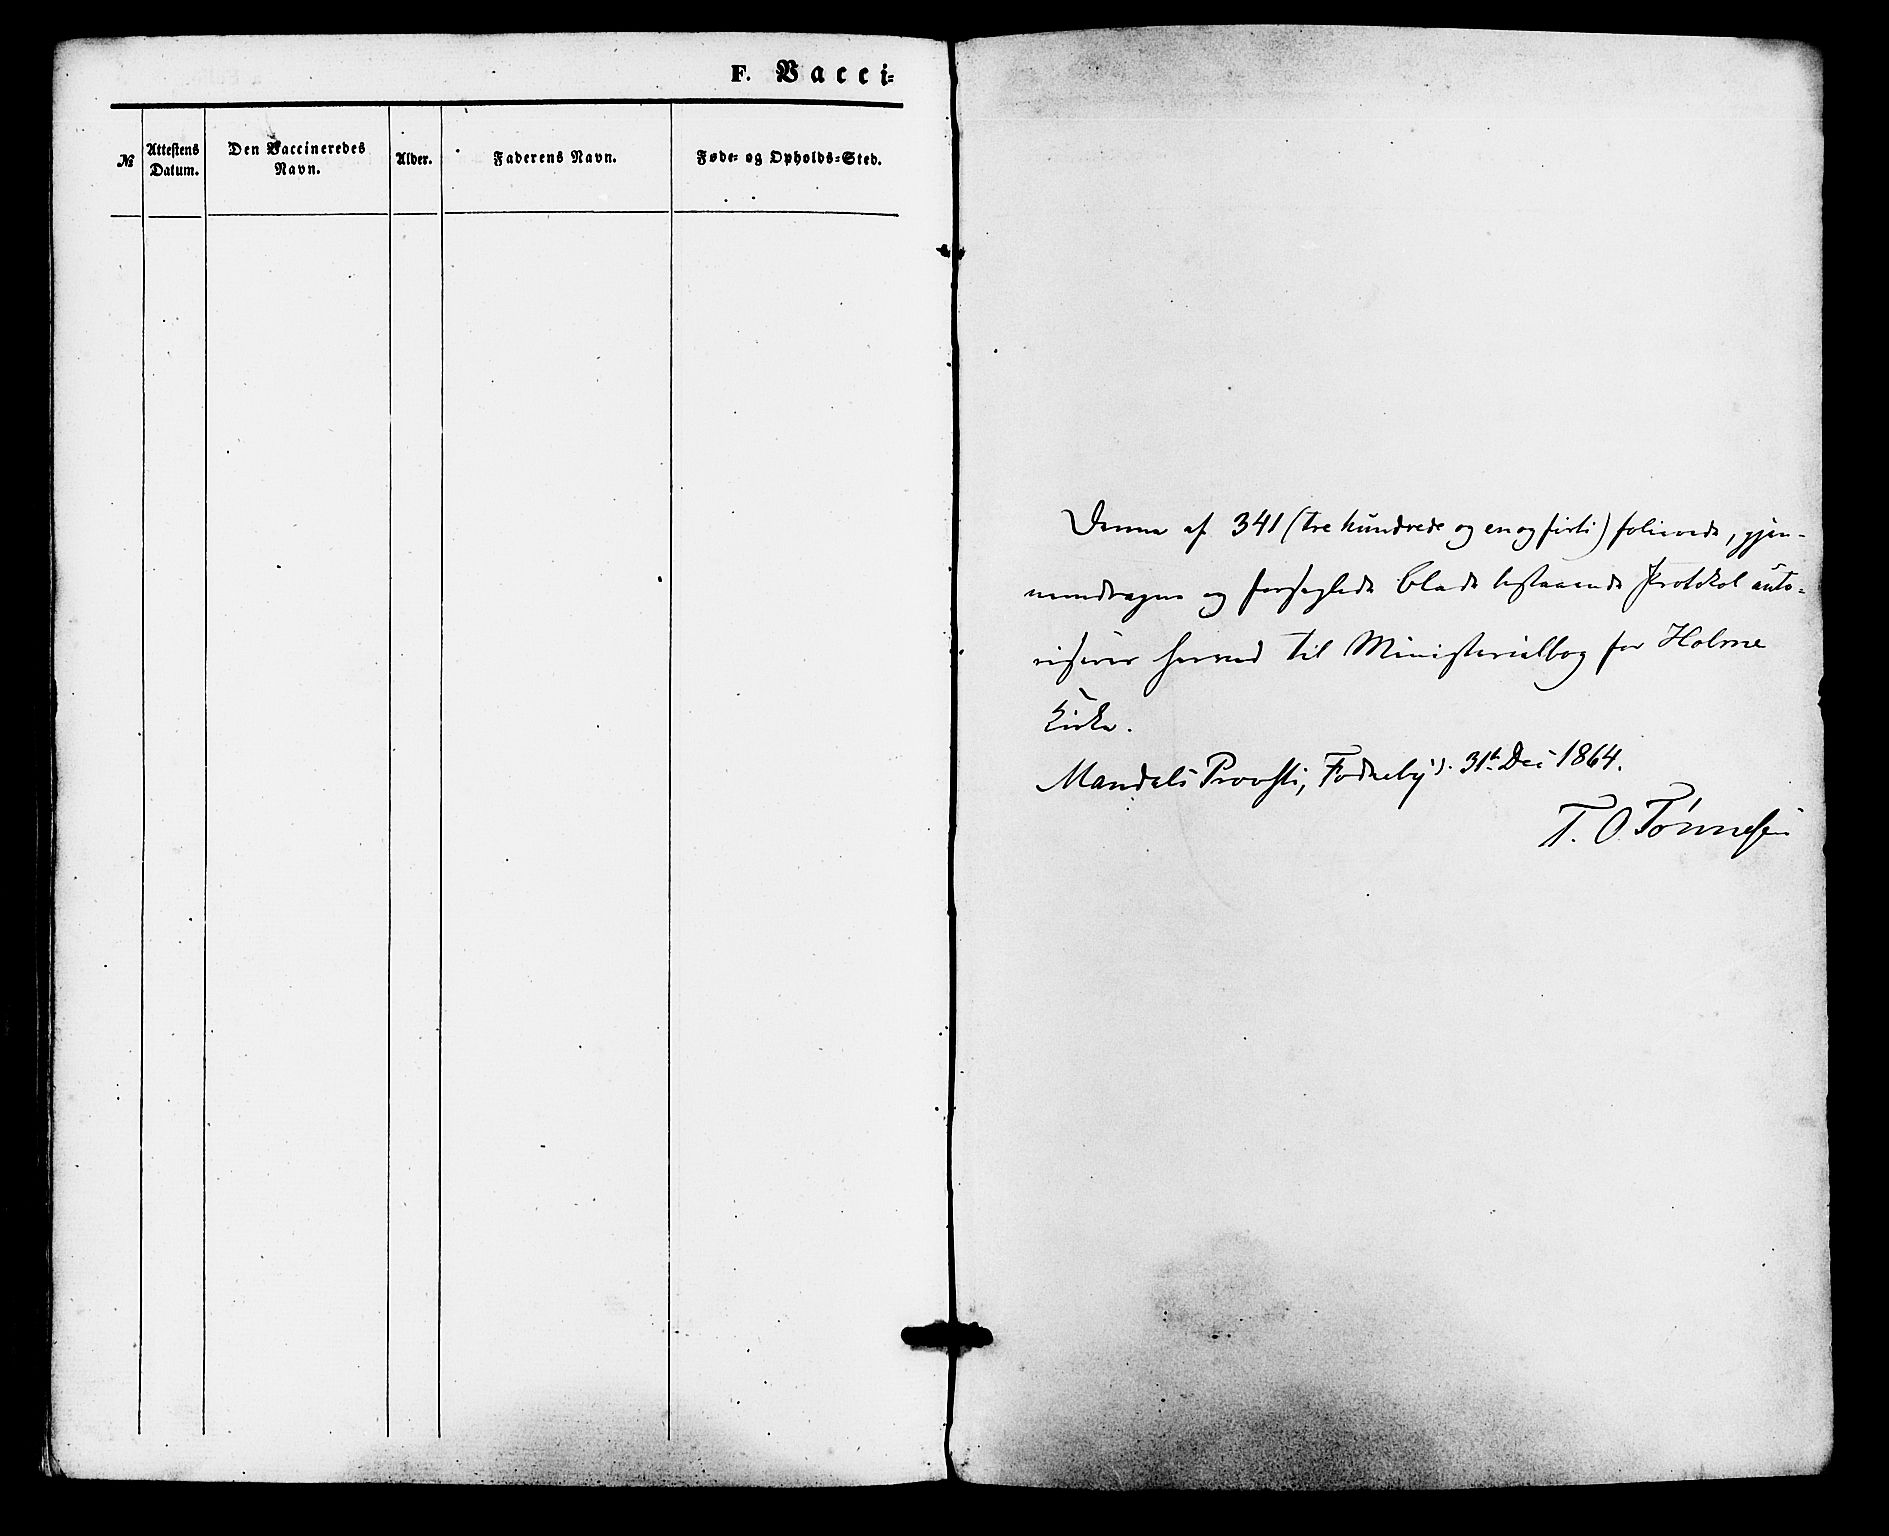 F. Vacci-
№
Attestens
Datum.
Den Vaccineredes
Navn.
Alder.
Faderens Navn.
Føde- og Opholds-Sted.
Denne af 341 (tre hundrede og en og firti) folierede, gjen-
nemdragne og forseglede Blade bestaaende Protokol auto-
riseres herved til Ministerialbog for Holme
Kirke.
Mandals Provsti, 31te Dec 1864.
T. O Tønnesen